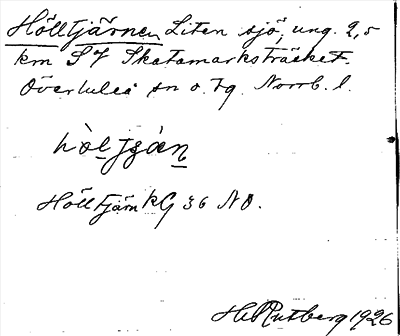 Hölltjärnen Liten sjö, ung. 2,5
km SV Skatamarksträsket.
Överluleå sn o. tg. Norrb. l.
hòl jgàn
Hölltjärn kG 36 NO.
H. Rutberg 1926